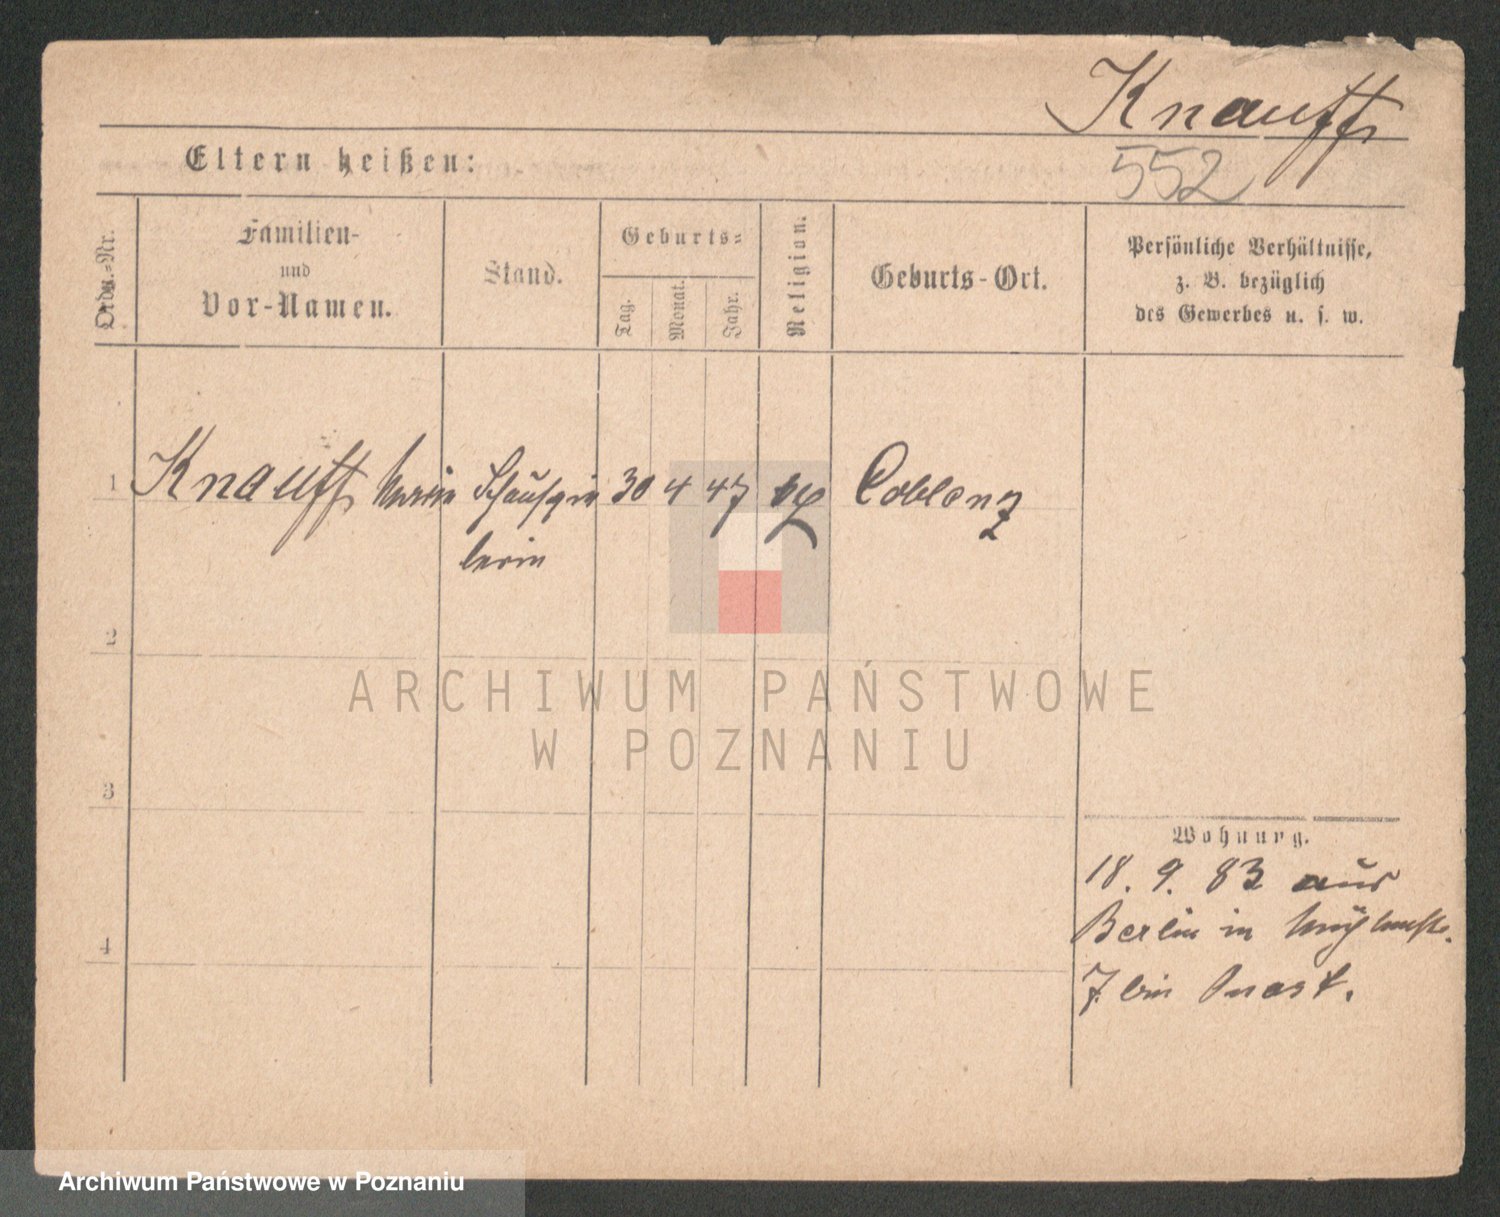 Knauff
552
Eltern heißen:
Ordn.-Nr.
Familien-
und
Vor-Namen.
Stand.
Geburts-
Tag.
Monat.
Jahr.
Religion.
Geburts-Ort.
Persönliche Verhältnisse,
z. B. bezüglich
des Gewerbes u. s. w.
1 Knauff Marie Schauspie 30 4 47 Coblenz
lerin
2
ARCHIWUM PAŃSTWOWE
W POZNANIU
3
Wohnung.
18. 9. 83 aus
Berlin in
4
7. bei
Archiwum Państwowe w Poznaniu